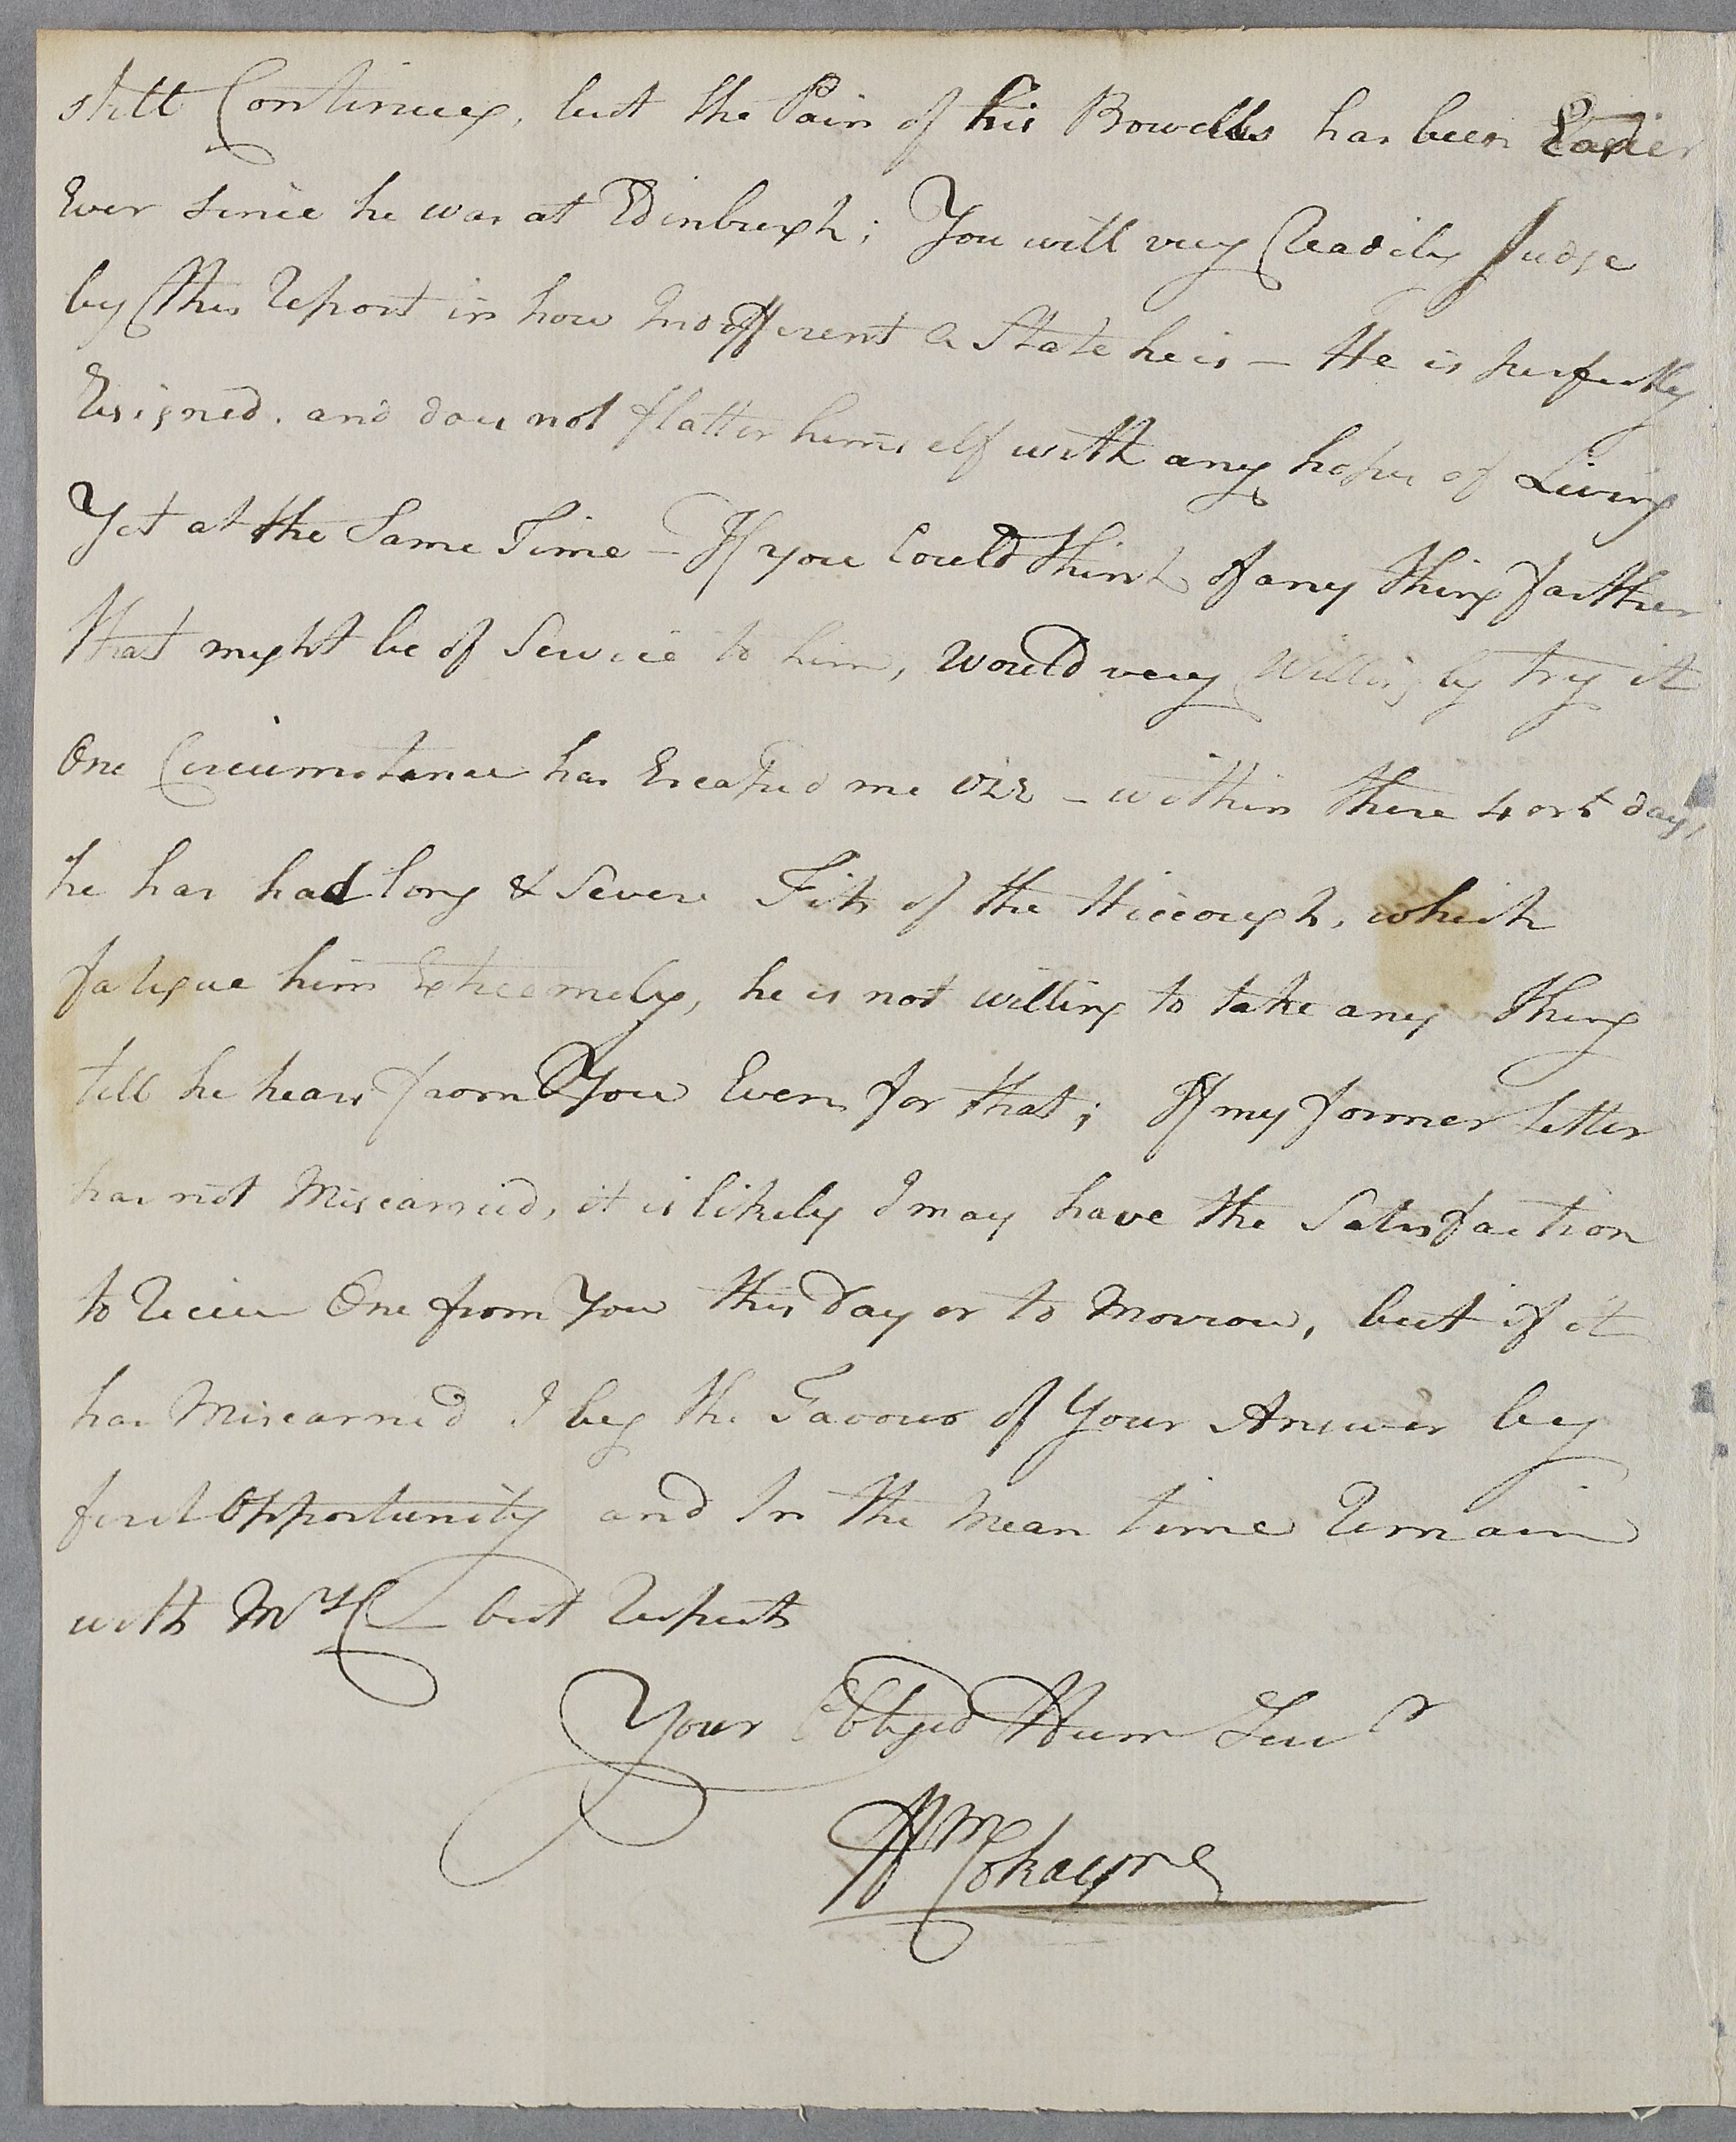 still Continues, but the Pain of his Bowells has been Easier
Ever since he was at Edinburgh; You will very Readily Judge
by this Report in how Indifferent a State he is – He is perfectly
Resigned. and does not flatter himself with any hopes of Living
Yet at the Same Time – If you Could think of any thing farther
that might be of Service to him, would very Willingly try it
One Circumstance has Escaped me vizt – within these 4 or 5 days,
he has had long & Severe Fits of the Hiccough, which
fatigue him Extreemely, he is not willing to take any thing
till he hears from You Even for that; If my former Letter
has not Miscarried, it is likely I may have the Satisfaction
to Receive One from You this Day or to Morrow, but if it
has Miscarried I beg the Favour of Your Answer by
first Opportunity and In the Mean time Remain
with Mrs C– best Respects
Your Obliged Hum Servt
Wm Cokayne